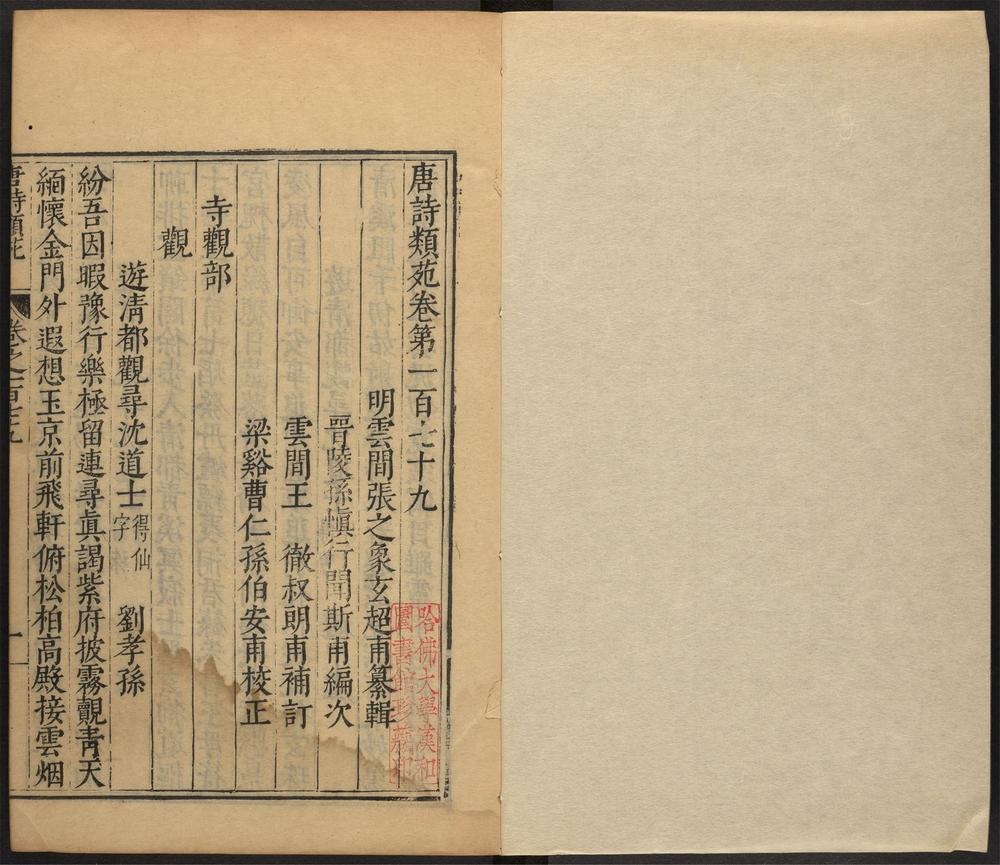 唐詩類苑卷第一百七十九
明雲間張之象玄超甫纂輯
晉陵孫愼行聞斯甫編次
雲間王　徹叔朗甫補訂
梁谿曹仁孫伯安甫校正
寺觀部
觀
遊清都觀尋沈道士得仙字　劉孝孫
紛吾因暇豫行樂極留連尋眞謁紫府披霧覿青天
緬懷金門外遐想玉京前飛軒俯松柏高殿接雲烟
唐詩類苑　卷之一百七十九　一
哈佛大學漢和
圖書館珍藏印